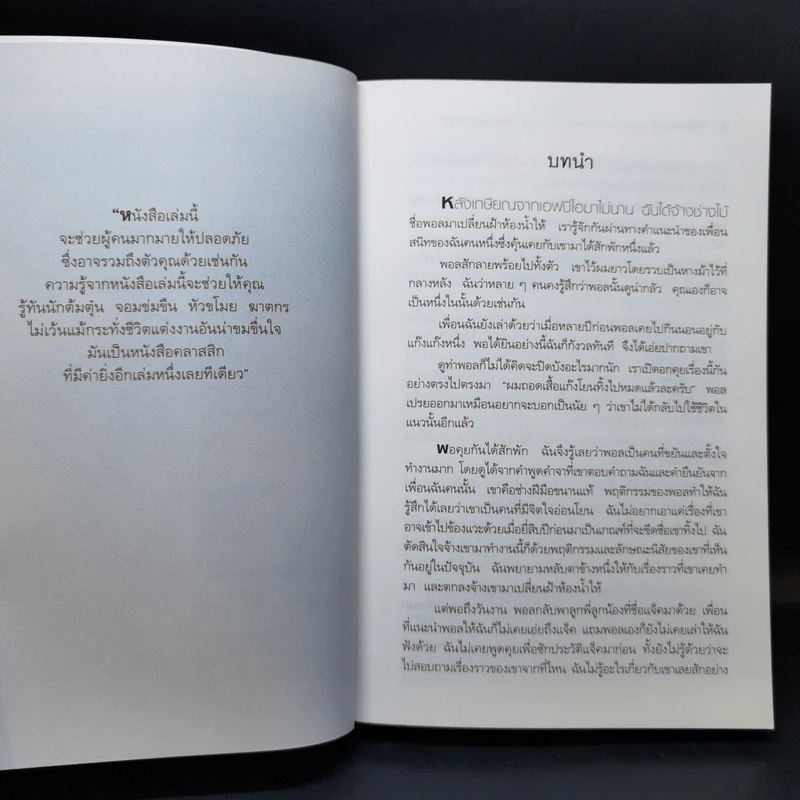 “หนังสือเล่มนี้
จะช่วยผู้คนมากมายให้ปลอดภัย
ซึ่งอาจรวมถึงตัวคุณด้วยเช่นกัน
ความรู้จากหนังสือเล่มนี้จะช่วยให้คุณ
รู้ทันนักต้มตุ๋น จอมข่มขืน หัวขโมย ฆาตกร
ไม่เว้นแม้กระทั่งชีวิตแต่งงานอันน่าขมขื่นใจ
มันเป็นหนังสือคลาสสิก
ที่มีค่ายิ่งอีกเล่มหนึ่งเลยทีเดียว”
บทนำ
หลังเกษียณจากเอฟบีไอมาไม่นาน ฉันได้จ้างช่างไม้
ชื่อพอลมาเปลี่ยนฝ้าห้องน้ำให้ เรารู้จักกันผ่านทางคำแนะนำของเพื่อน
สนิทของฉันคนหนึ่งซึ่งคุ้นเคยกับเขามาได้สักพักหนึ่งแล้ว
พอลสักลายพร้อยไปทั้งตัว เขาไว้ผมยาวโดยรวบเป็นหางม้าไว้ที่
กลางหลัง ฉันว่าหลาย ๆ คนคงรู้สึกว่าพอลนั้นดูน่ากลัว คุณเองก็อาจ
เป็นหนึ่งในนั้นด้วยเช่นกัน
เพื่อนฉันยังเล่าด้วยว่าเมื่อหลายปีก่อนพอลเคยไปกินนอนอยู่กับ
แก๊งแก๊งหนึ่ง พอได้ยินอย่างนี้ฉันก็กังวลทันที จึงได้เอ่ยปากถามเขา
ดูท่าพอลก็ไม่ได้คิดจะปิดบังอะไรมากนัก เราเปิดอกคุยเรื่องนี้กัน
อย่างตรงไปตรงมา “ผมถอดเสื้อแก๊งโยนทิ้งไปหมดแล้วละครับ” พอล
เปรยออกมาเหมือนอยากจะบอกเป็นนัย ๆ ว่าเขาไม่ได้กลับไปใช้ชีวิตใน
แนวนั้นอีกแล้ว
พอคุยกันได้สักพัก ฉันจึงรู้เลยว่าพอลเป็นคนที่ขยันและตั้งใจ
ทำงานมาก โดยดูได้จากคำพูดคำจาที่เขาตอบคำถามฉันและคำยืนยันจาก
เพื่อนฉันคนนั้น เขาคือช่างฝีมือขนานแท้ พฤติกรรมของพอลทำให้ฉัน
รู้สึกได้เลยว่าเขาเป็นคนที่มีจิตใจอ่อนโยน ฉันไม่อยากเอาแค่เรื่องที่เขา
อาจเข้าไปข้องแวะด้วยเมื่อยี่สิบปีก่อนมาเป็นเกณฑ์ที่จะขีดชื่อเขาทิ้งไป ฉัน
ตัดสินใจจ้างเขามาทำงานนี้ก็ด้วยพฤติกรรมและลักษณะนิสัยของเขาที่เห็น
กันอยู่ในปัจจุบัน ฉันพยายามหลับตาข้างหนึ่งให้กับเรื่องราวที่เขาเคยทำ
มา และตกลงจ้างเขามาเปลี่ยนฝ้าห้องน้ำให้
แต่พอถึงวันงาน พอลกลับพาลูกพี่ลูกน้องที่ชื่อแจ็คมาด้วย เพื่อน
ที่แนะนำพอลให้ฉันก็ไม่เคยเอ่ยถึงแจ็ค แถมพอลเองก็ยังไม่เคยเล่าให้ฉัน
ฟังด้วย ฉันไม่เคยพูดคุยเพื่อซักประวัติแจ็คมาก่อน ทั้งยังไม่รู้ด้วยว่าจะ
ไปสอบถามเรื่องราวของเขาจากที่ไหน ฉันไม่รู้อะไรเกี่ยวกับเขาเลยสักอย่าง